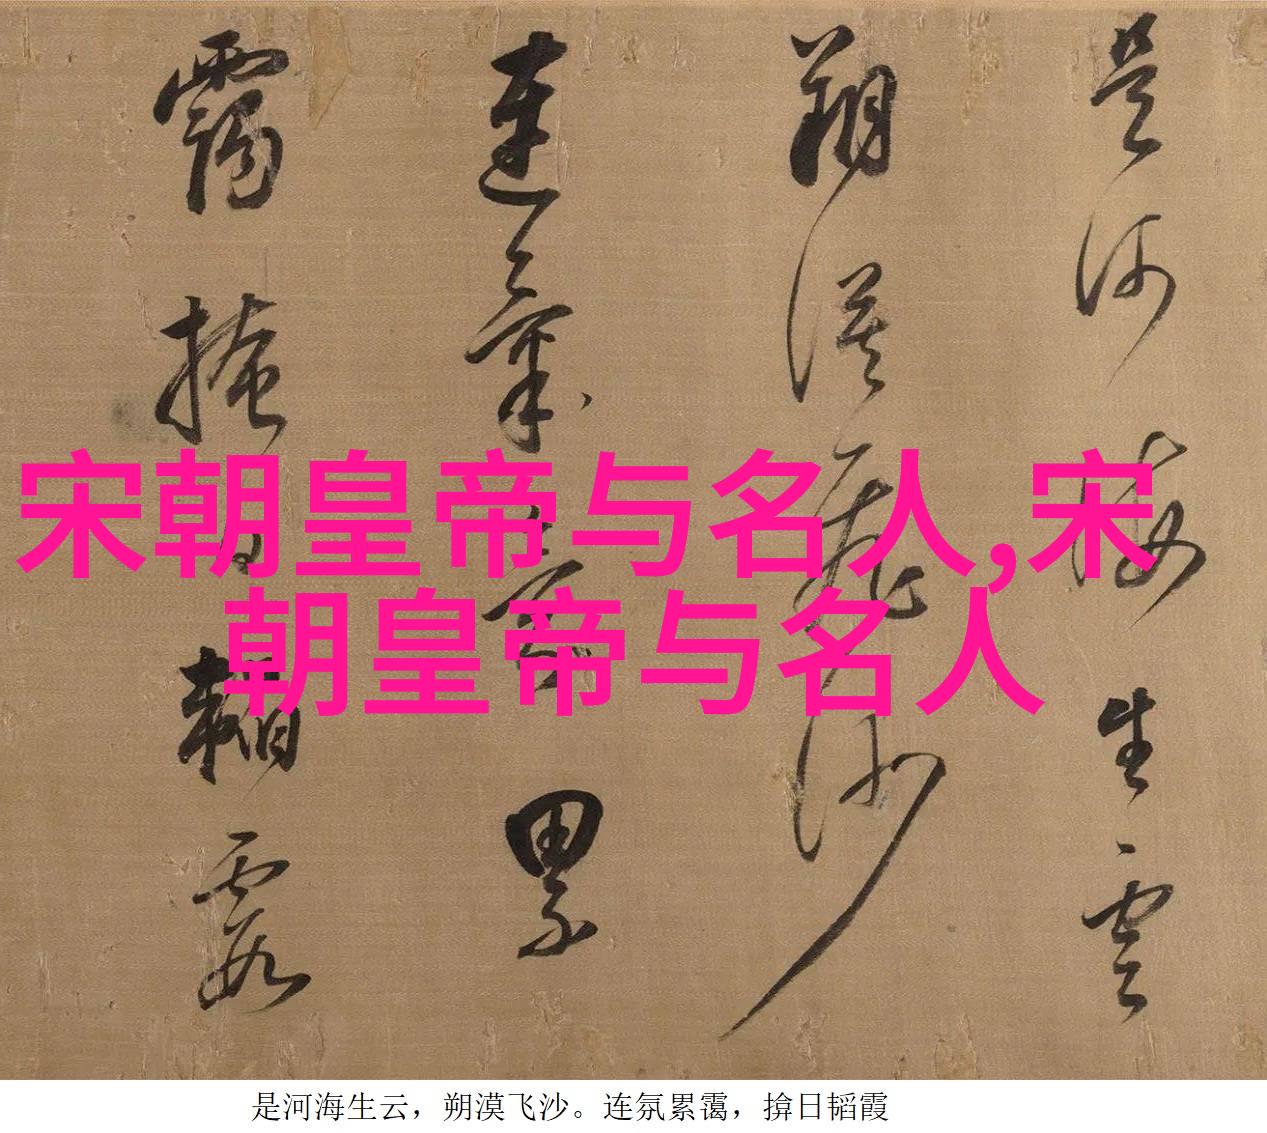 是河海生云
朔漠飞沙
连氛累
霭掩日韬霞
宋朝皇帝与名人,宋
朝皇帝与名人
是河海生云，朔漠飞沙。连氛累霭，揜日韬霞